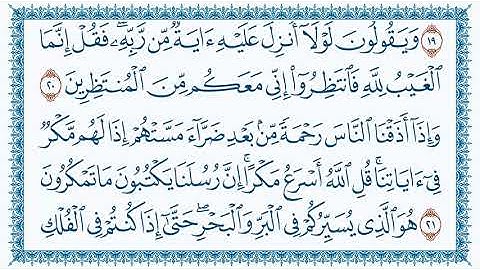 ١٩ وَيَقُولُونَ لَوْلَا أُنزِلَ عَلَيْهِ ءَايَةٌ مِّن رَّبِّهِۦ فَقُلْ إِنَّمَا
ٱلْغَيْبُ لِلَّهِ فَٱنتَظِرُوٓا۟ إِنِّى مَعَكُم مِّنَ ٱلْمُنتَظِرِينَ ٢٠
وَإِذَآ أَذَقْنَا ٱلنَّاسَ رَحْمَةً مِّنۢ بَعْدِ ضَرَّآءَ مَسَّتْهُمْ إِذَا لَهُم مَّكْرٌ
فِىٓ ءَايَاتِنَا ۚ قُلِ ٱللَّهُ أَسْرَعُ مَكْرًا ۚ إِنَّ رُسُلَنَا يَكْتُبُونَ مَا تَمْكُرُونَ
٢١ هُوَ ٱلَّذِى يُسَيِّرُكُمْ فِى ٱلْبَرِّ وَٱلْبَحْرِ ۖ حَتَّىٰٓ إِذَا كُنتُمْ فِى ٱلْفُلْكِ